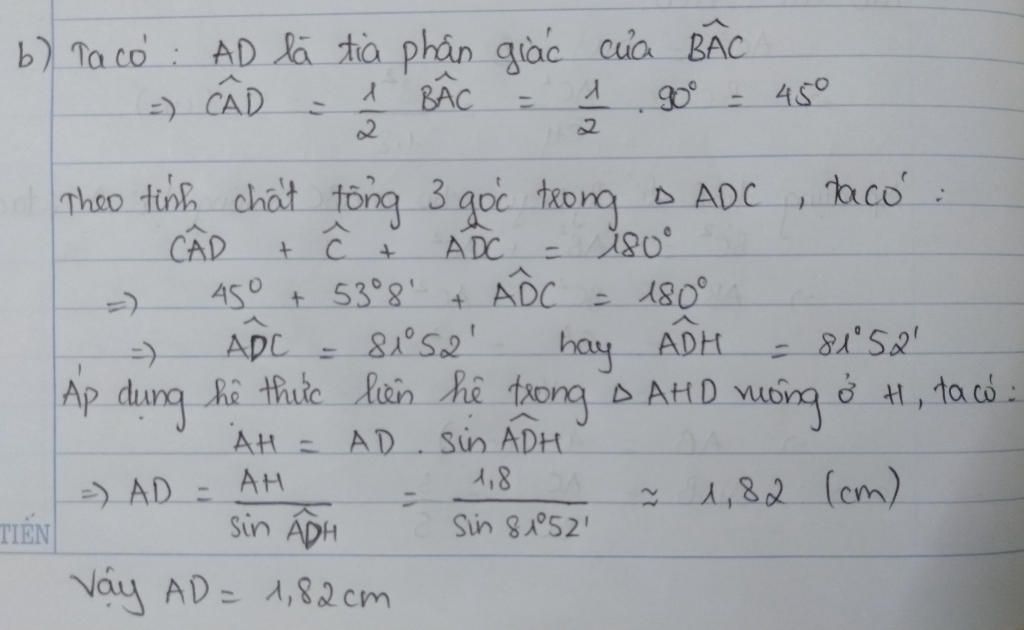 b) Ta có : AD là tia phân giác của BÂC
=> CÂD = 1/2 BÂC = 1/2 . 90° = 45°
Theo tính chất tổng 3 góc trong Δ ADC , ta có :
CÂD + Ĉ + AD̂C = 180°
=> 45° + 53°8' + AD̂C = 180°
=> AD̂C = 81°52' hay AD̂H = 81°52'
Áp dụng hệ thức liên hệ trong Δ AHD vuông ở H, ta có :
AH = AD . sin AD̂H
=> AD = AH / sin AD̂H = 1,8 / sin 81°52' ≈ 1,82 (cm)
TIẾN
Vậy AD = 1,82cm